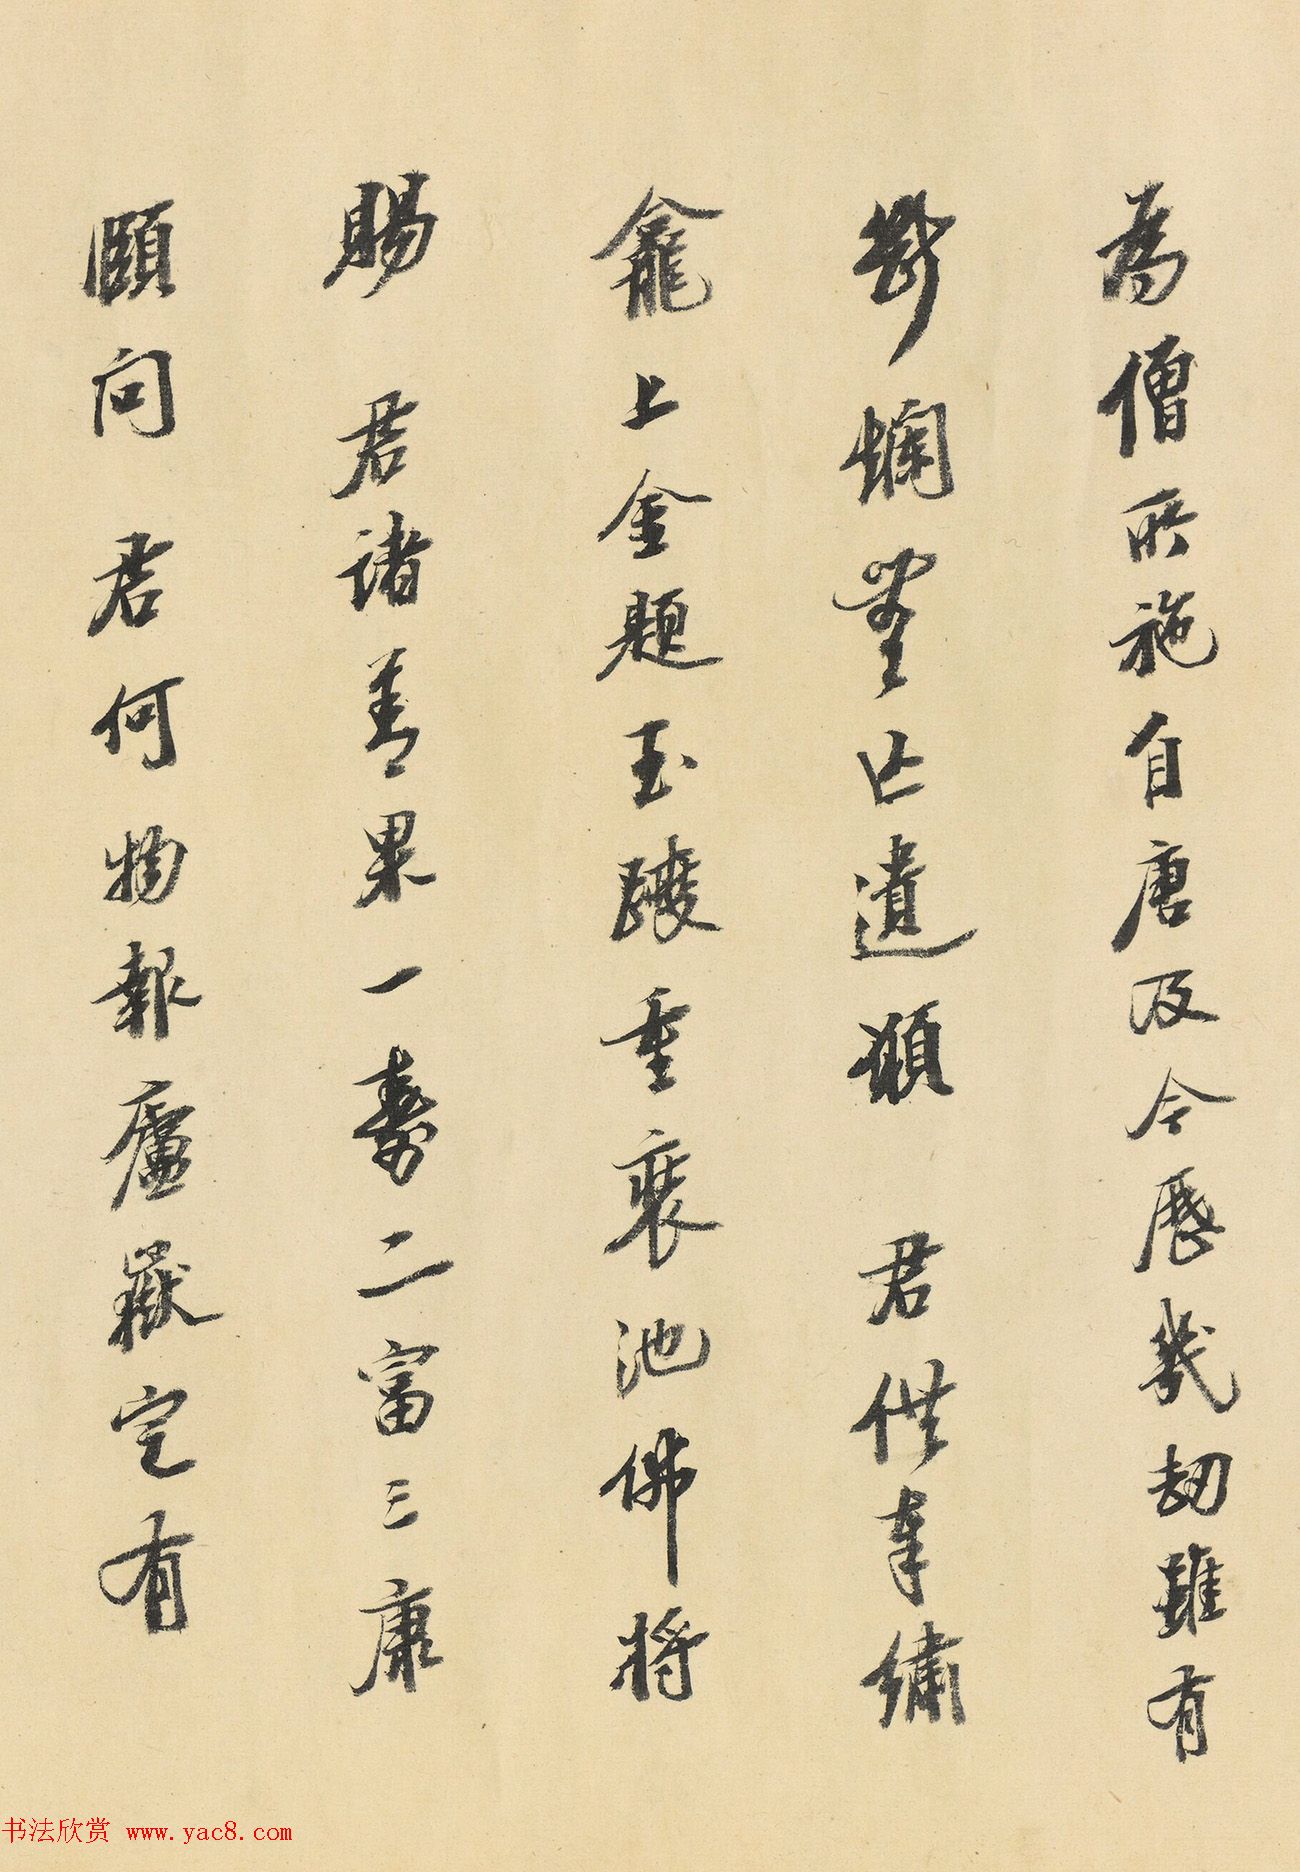 為僧所施自唐及今歷幾劫雖有
斷爛無亡遺願 君供奉繡
龕上金題玉躞重裝池佛將
賜 君諸善果一壽二富三康
頤問 君何物報廬嶽定有
书法欣赏 www.yac8.com